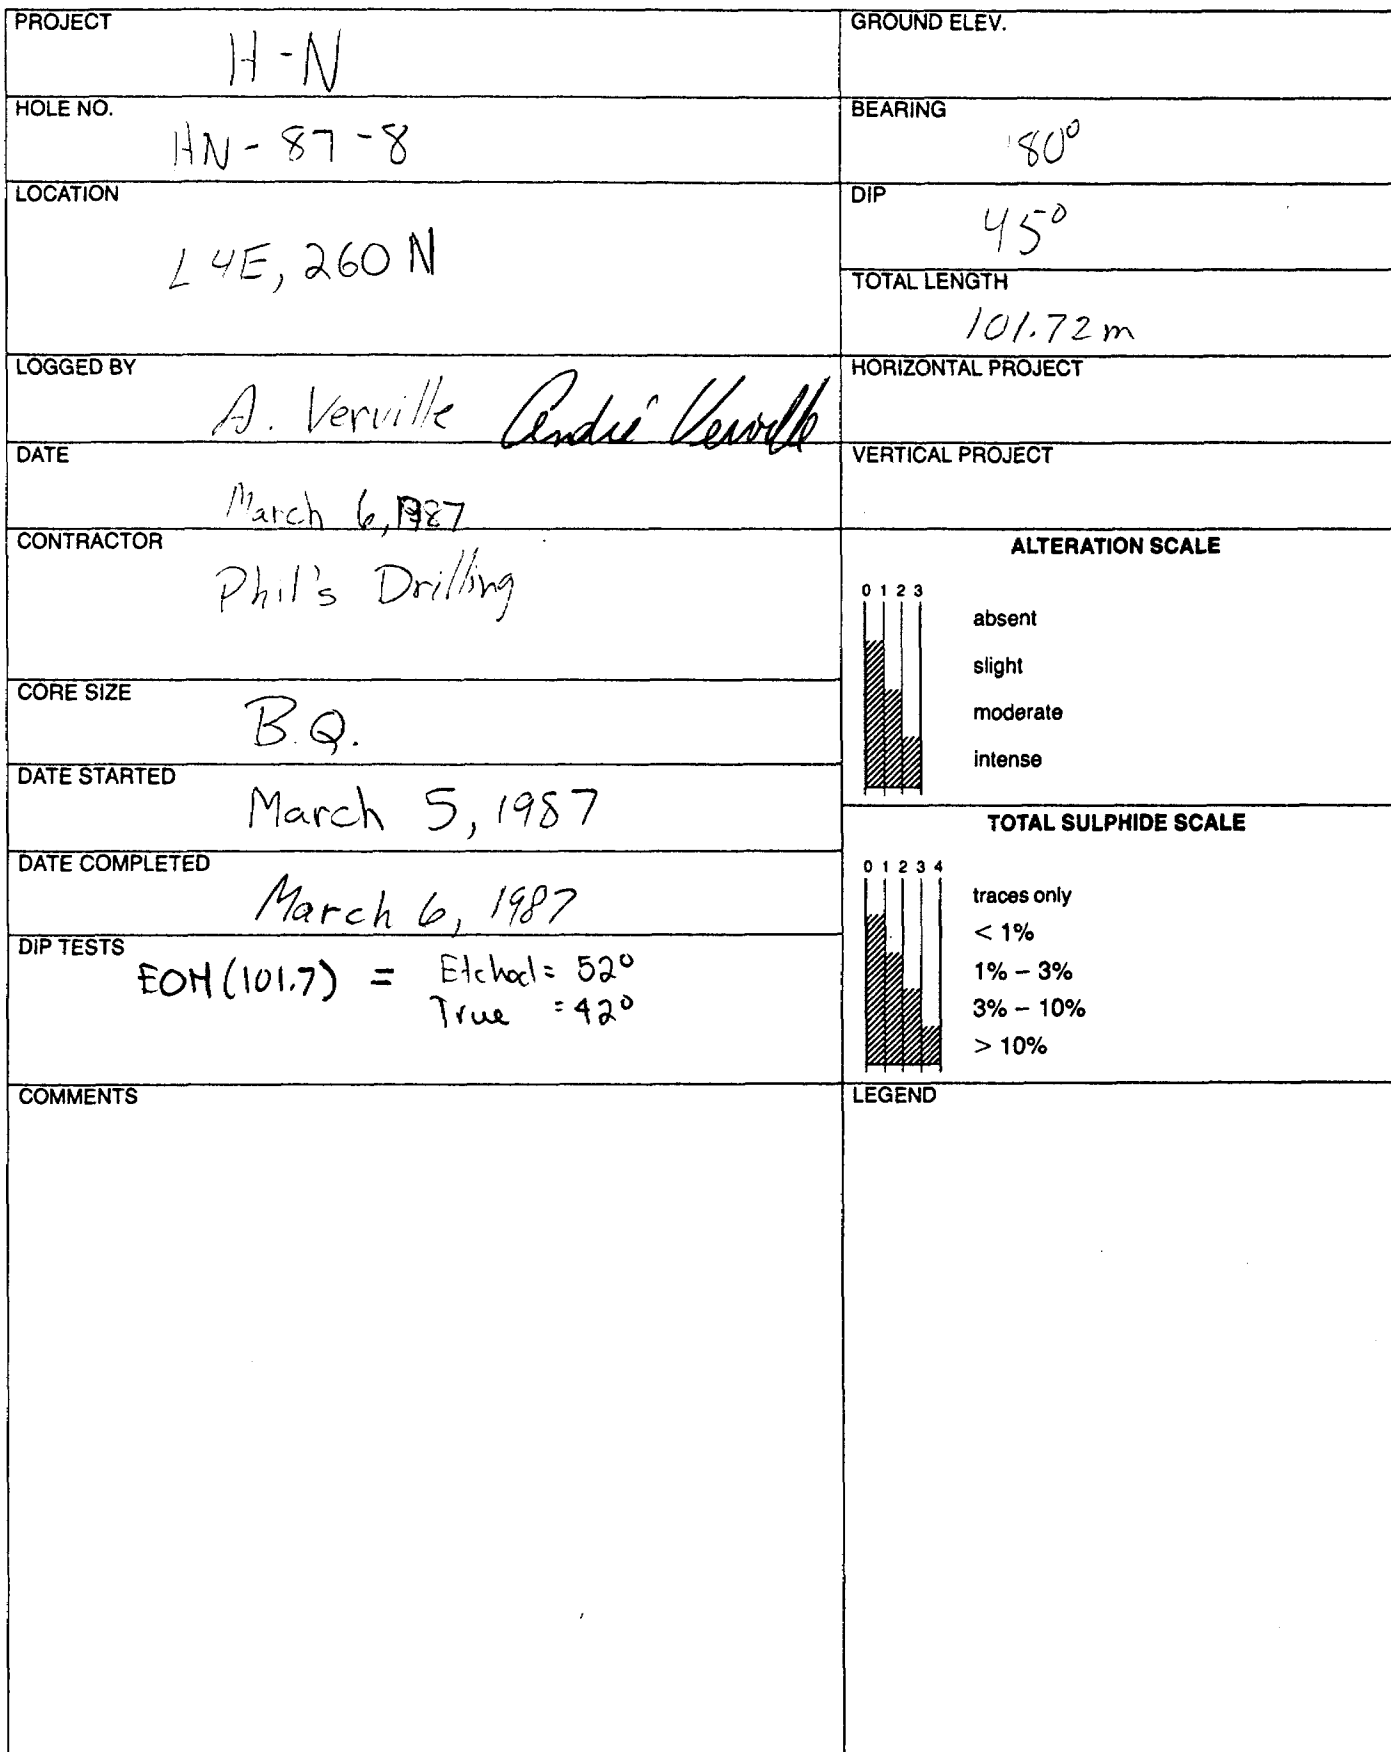 PROJECT
H-N
HOLE NO.
HN-87-8
LOCATION
L4E, 260 N
LOGGED BY
A. Verville André Verville
DATE
March 6, 1987
CONTRACTOR
Phil's Drilling
CORE SIZE
B.Q.
DATE STARTED
March 5, 1987
DATE COMPLETED
March 6, 1987
DIP TESTS
EOH (101.7) = Etched = 52°
True = 42°
COMMENTS
GROUND ELEV.
BEARING
180°
DIP
45°
TOTAL LENGTH
101.72 m
HORIZONTAL PROJECT
VERTICAL PROJECT
ALTERATION SCALE
0 1 2 3
absent
slight
moderate
intense
TOTAL SULPHIDE SCALE
0 1 2 3 4
traces only
< 1%
1% – 3%
3% – 10%
> 10%
LEGEND